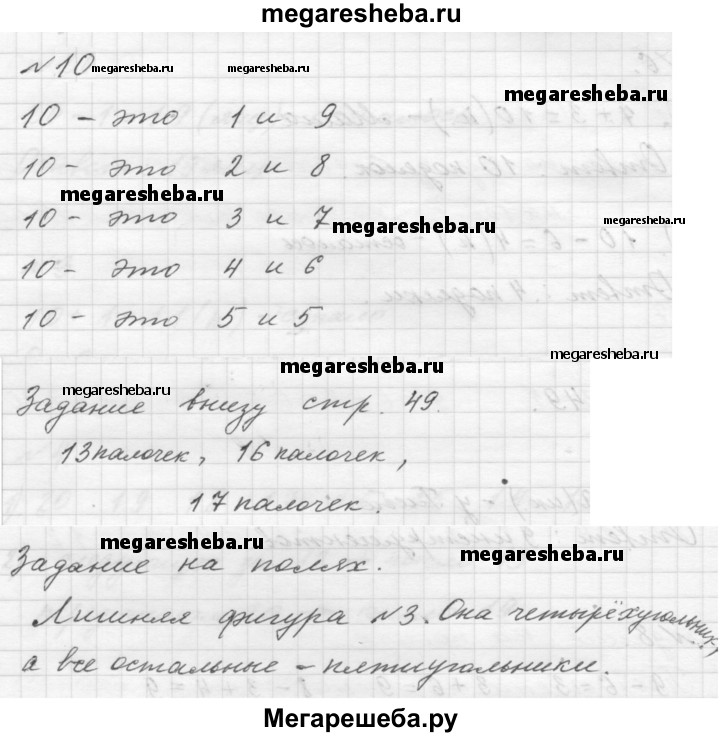 megaresheba.ru
№10 megaresheba.ru megaresheba.ru
megaresheba.ru
10 - это 1 и 9
10 - это 2 и 8
megaresheba.ru
10 - это 3 и 7
megaresheba.ru
megaresheba.ru
10 - это 4 и 6
10 - это 5 и 5
megaresheba.ru
megaresheba.ru
megaresheba.ru
Задание внизу стр. 49.
13 палочек, 16 палочек,
17 палочек.
megaresheba.ru
megaresheba.ru
Задание на полях.
Лишняя фигура №3. Она четырёхугольник,
а все остальные - пятиугольники.
Мегарешеба.ру